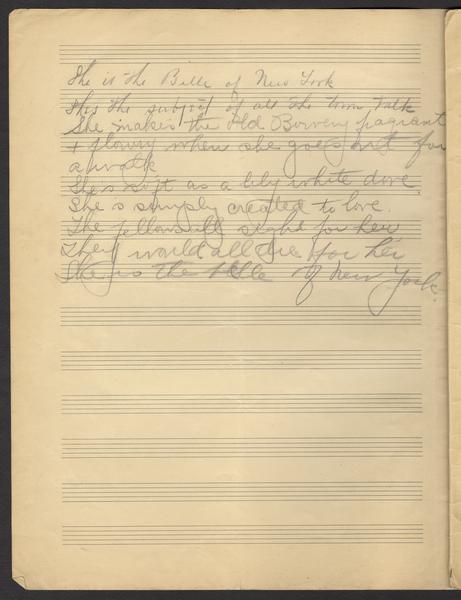 She is the Belle of New York
She's the subject of all the town talk
She makes the old Bowery fragrant
+ flowery when she goes out for
a walk
She's soft as a lily white dove.
She's simply created to love.
The fellows all sight for her
They would all die for her
She is the belle of New York.